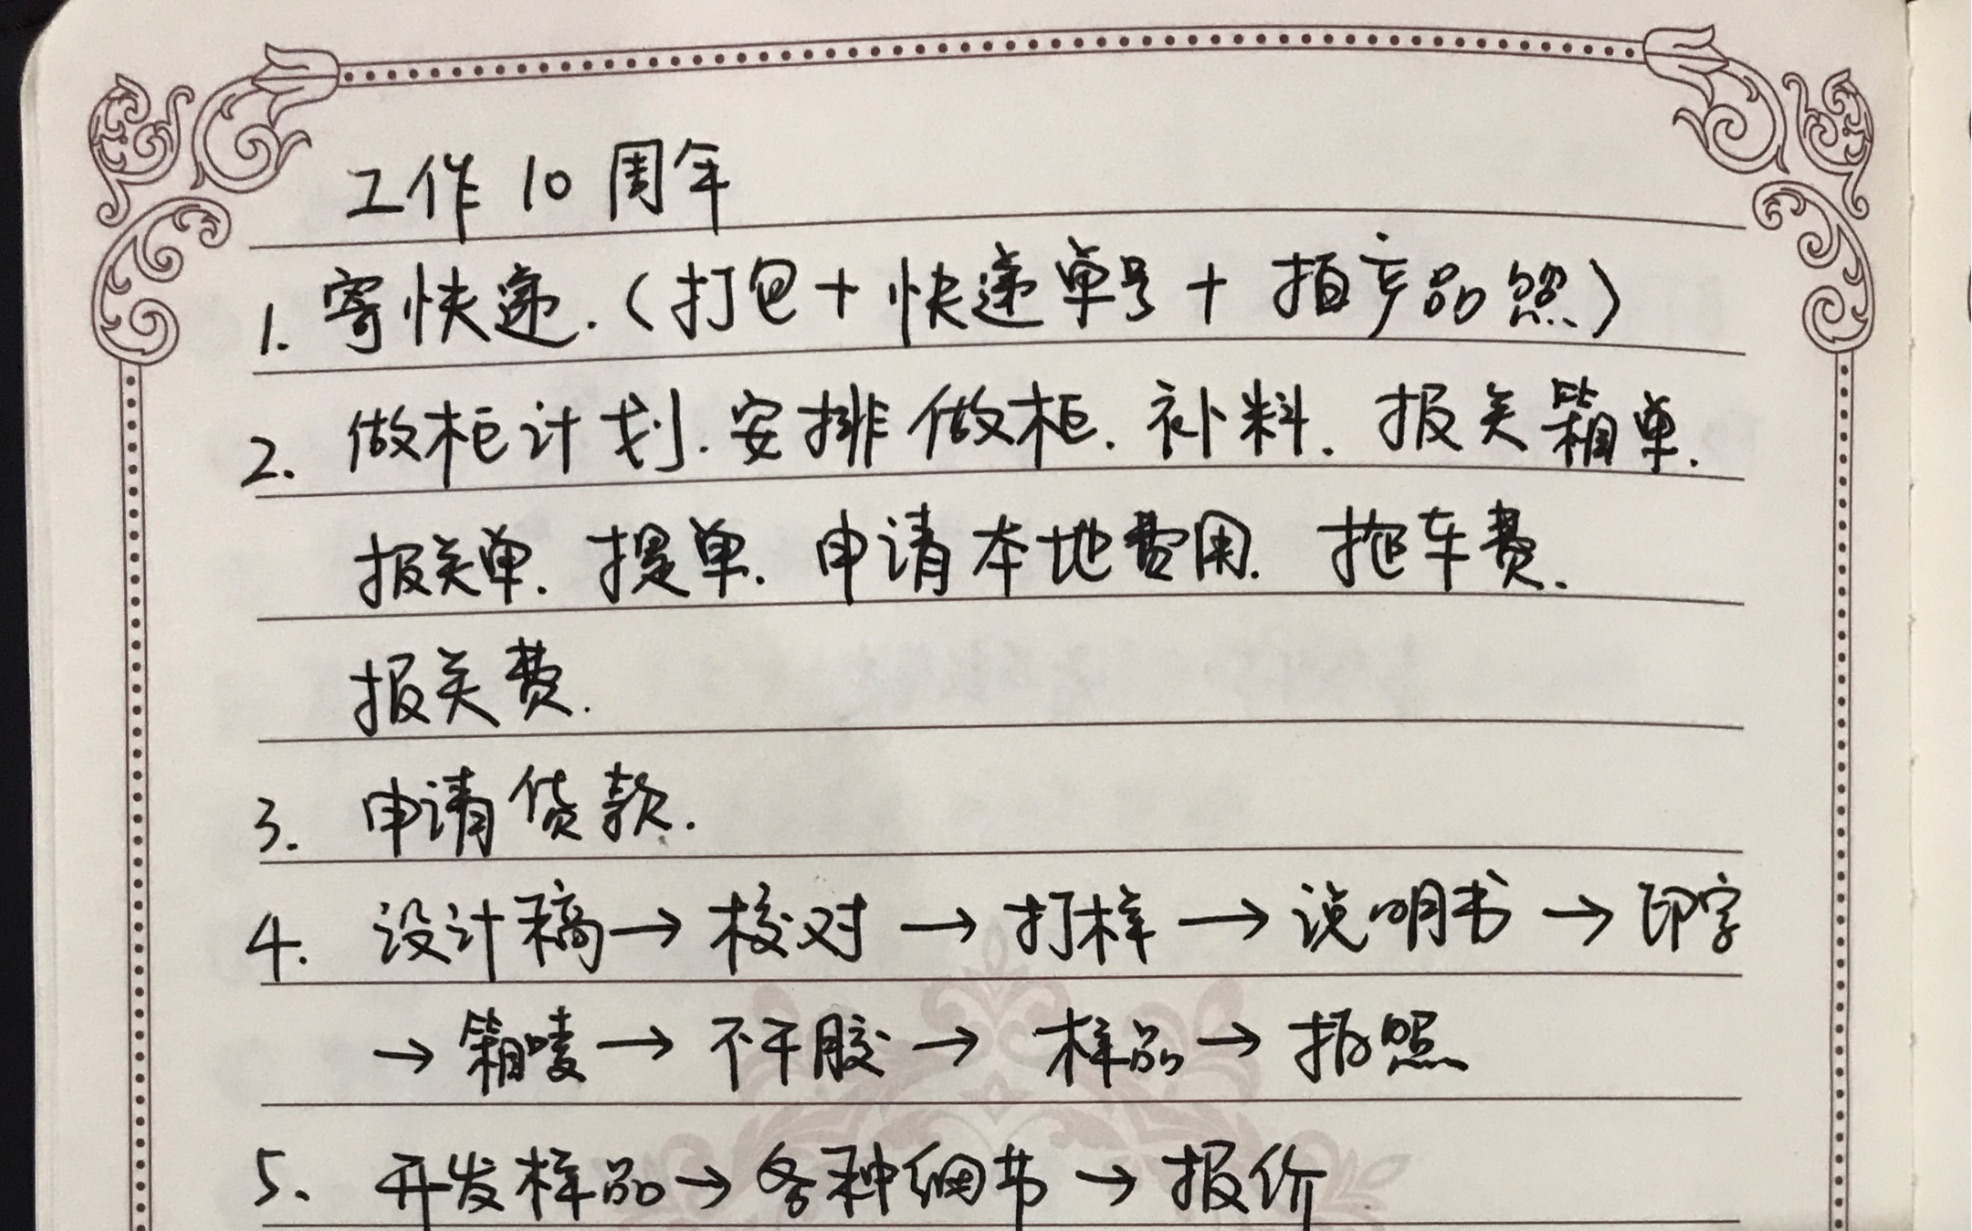 工作10周年
1. 寄快递.(打包+快递单号+拍产品照)
2. 做柜计划.安排做柜.补料.报关箱单.
报关单.提单.申请本地费用.拖车费.
报关费.
3. 申请货款.
4. 设计稿→校对→打样→说明书→印字
→箱唛→不干胶→样品→拍照
5、开发样品→各种细节→报价